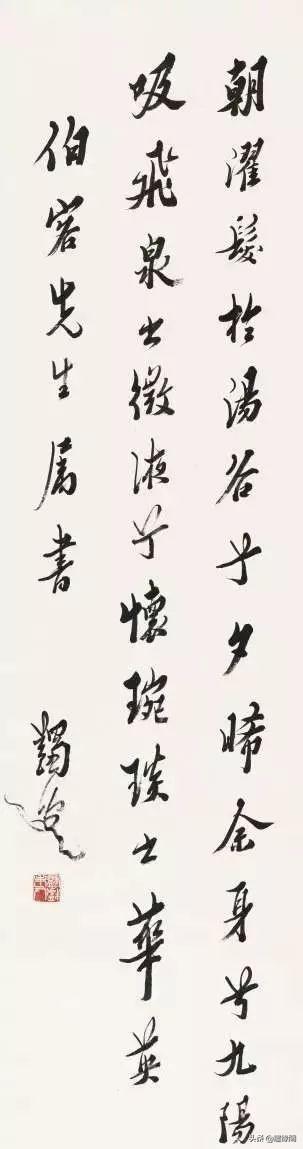 朝濯髮於湯谷兮夕晞余身兮九陽
吸飛泉之微液兮懷琬琰之華英
伯先生屬書
蠲叟
头条